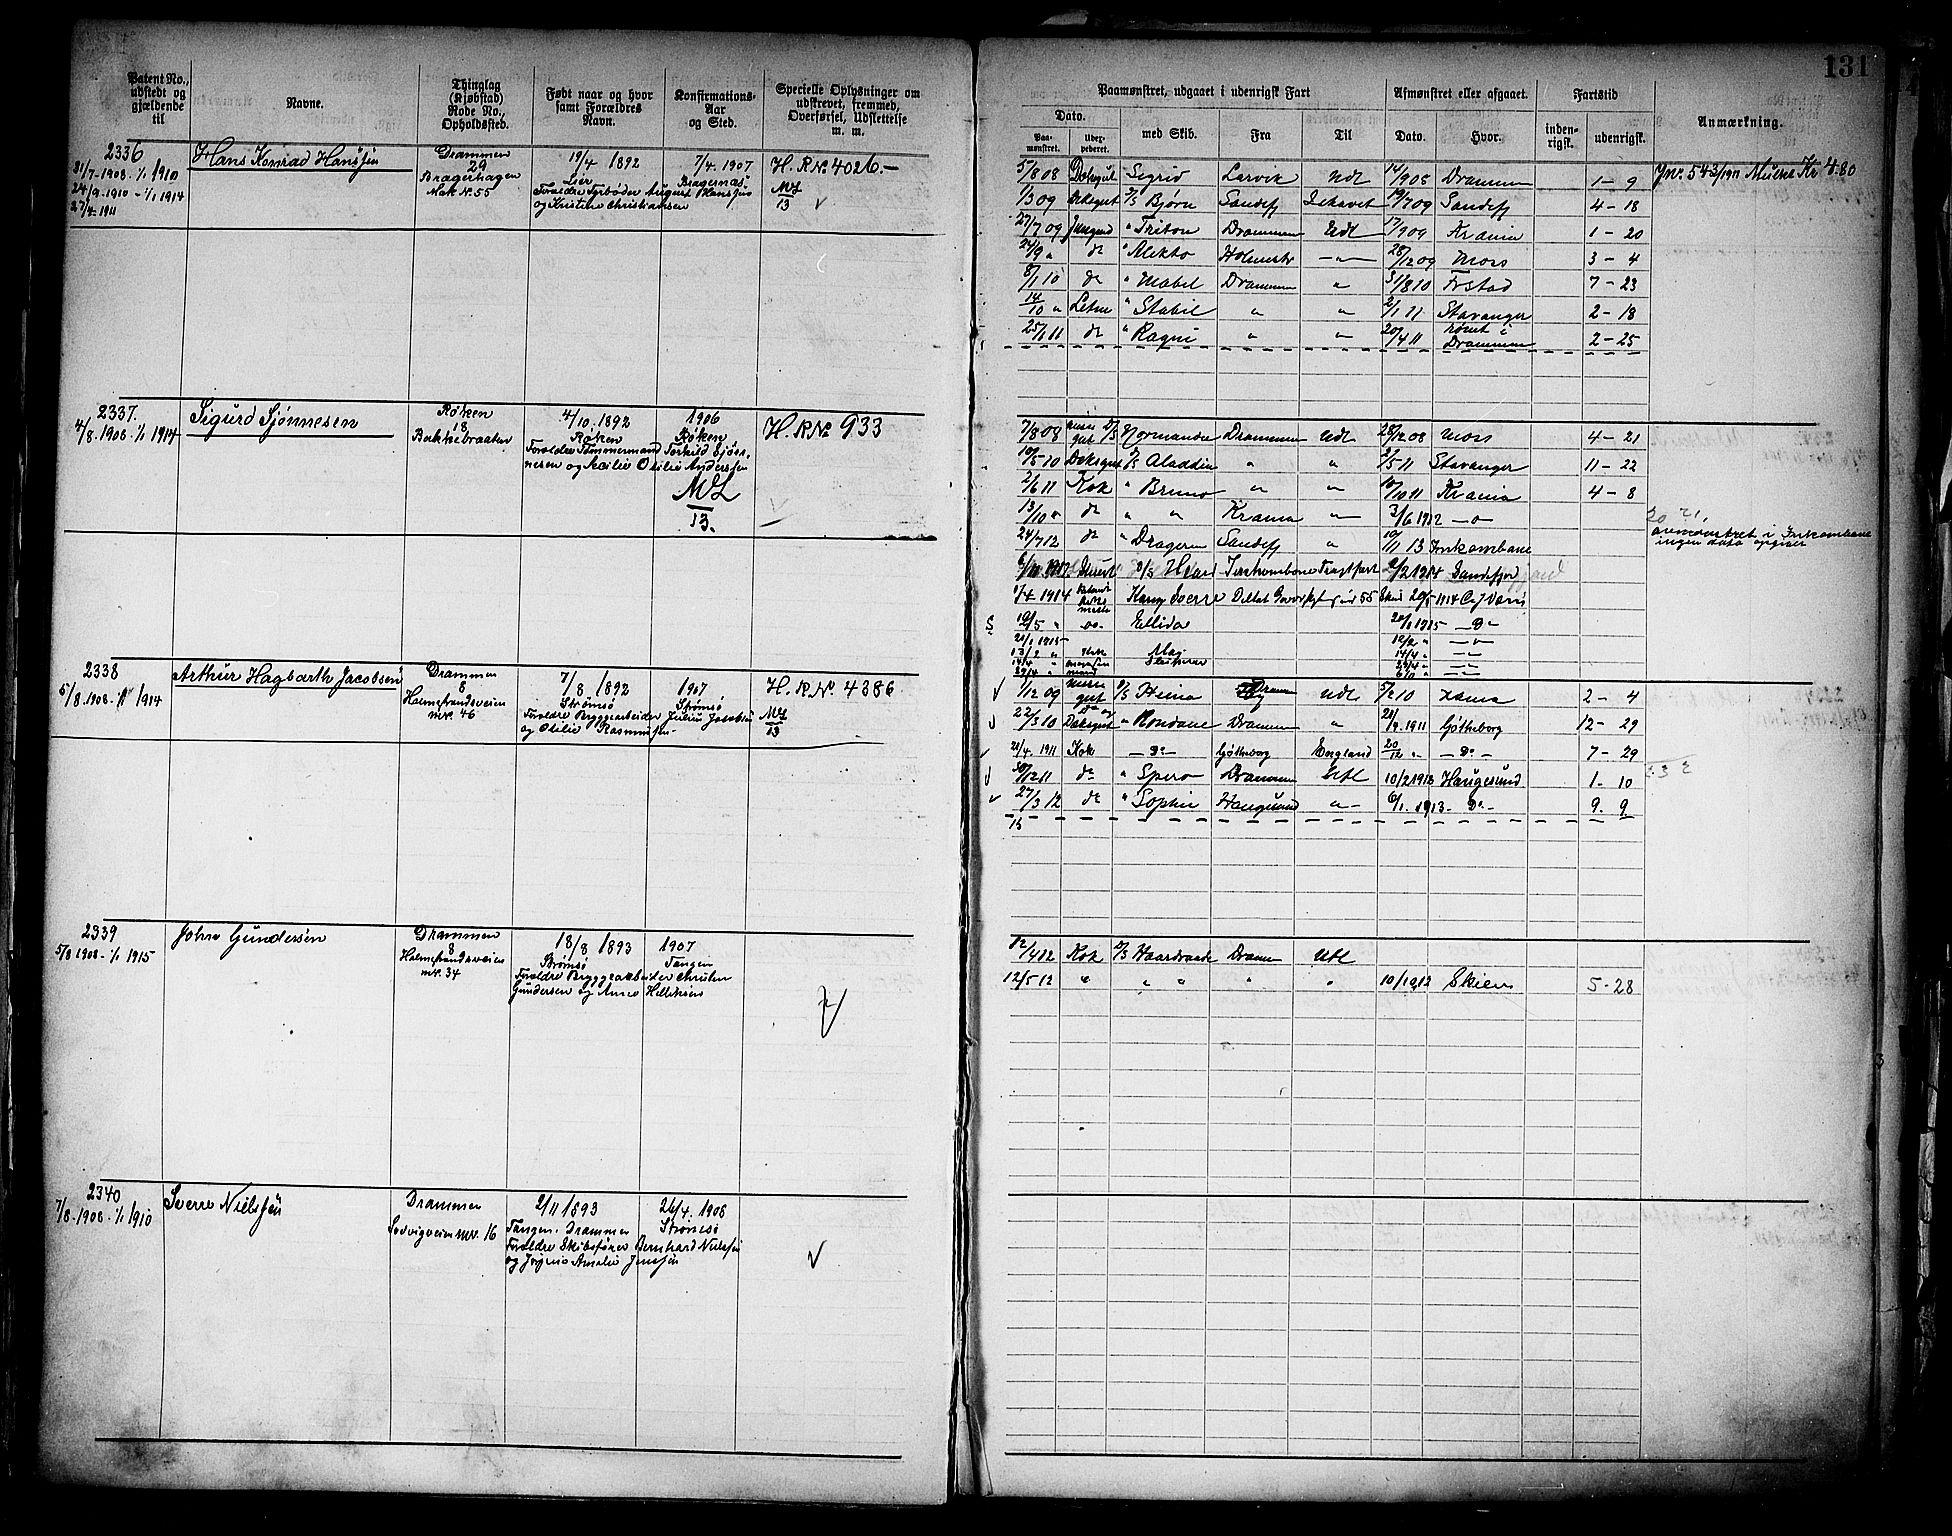 131
Patent No.,
udstedt og
gjældende
til
Navne.
Thinglag
(Kjøbstad)
Rode No.,
Opholdssted.
Født naar og hvor
samt Forældres
Navn.
Konfirmations-
Aar
og Sted.
Specielle Oplysninger om
udskrevet, fremmed,
Overførsel, Udslettelse
m. m.
Paamønstret, udgaaet i udenrigsk Fart
Dato.
Paa-
mønstret.
med Skib.
Fra
Til
Afmønstret eller afgaaet.
Dato.
Hvor.
Fartstid
inden-
rigsk.
udenrigsk.
Anmærkning.
2336
31/7-1908-1/1 1910
24/9-1910 - 1/1 1914
27/4-1911
Hans Konrad Hansen
Drammen
29
Bragerhagen
Mak N. 55
19/4 1892
Lier
7/4. 1907
Bragernæs
og Kristine Christiansen
H.R.No 4026-
ML
13
5/8 08 Dæksgut Sigrid Larvik Udl 14/9 08 Drammen 1-9
Jnr. 543/1911 Mulkt Kr 4.80
1/3 09 Dæksgut D/S Bjørn Sandefj Ishavet 19/7 09 Sandefj 4-18
27/7 09 Jungmd " Triton Drammen Udl 17/9 09 Krania 1-20
24/9 " do " Alekto Holmestr -"- 28/12 09 Mors 3-4
8/1 10 do " Mabel Drammen " 31/8 10 Frstad 7-23
14/10 " Letm " Stabil " " 2/1 11 Stavanger 2-18
25/1 11 do " Ragni " " 20/4 11 rømt i Drammen 2-25
2337.
4/8.1908-1/1 1914
Sigurd Sjønnesen
Røken
18
Bakkebraaten
4/10.1892
Røken
Forældre Tømmermand Torkild Sjøn-
nesen og Cecilie Otilie Andersen
1906
Røken
ML
13.
H.R.No. 933
7/8 08 Normandie Drammen Udl 28/12 08 Mors 4-21
10/5 10 Dæksgut D/S Aladdin " " 2/5 11 Stavanger 11-22
2/6 11 Kok " Bruno " " 10/10 11 Krania 4-8
13/10 " do " " Krania " 3/6 1912 -"-
24/7 12 do " Drageren Sandefj 10/11 13
avmønstret i
ingen dato opgivet
Fragtfart 2/2 1914 Sandefjord
1/4 1914 Sverre
19/5 " Ellida 20/1 1915 -Do-
20/1 1915
2338
5/8.1908-1/1 1914
Arthur Hagbarth Jacobsen
Drammen
8
Holmestrandsveien
nr. 46
7/8.1892
Strømsø
Forældre Bryggearbeider Julius Jacobsen
og Otilie Rasmussen-
1907
Strømsø
H.R.No. 4386
ML
13
1/12 09 D/S Heina Udl 5/2 10 2-4
22/3 10 Dæksgut " Rondane Drammen " 21/4.1911 Gøtheborg 12-29
21/4.1911 Kok -Do- Gøtheborg England 20/12 " -Do- 7-29
30/12 11 do " Spero Drammen Udl 10/2 1912 Haugesund 1-10
27/3 12 do " Sophie Haugesund -"- 6/1.1913 -Do- 9.9.
15
2339
5/8 1908-1/1 1915
John Gundersen
Drammen
8
Holmestrandsveien
nr. 34
18/8 1893
Strømsø
Forældre Bryggearbeider Christen
Gundersen og Anne Helliksen
1907
Tangen
12/4 12 Kok D/S Haardraade Dramm Udl
12/5 12 " " " " " 10/10 12 Skien 5-28
2340
7/8-1908-1/1 1910
Sverre Nielsen
Drammen
Solvigveien nr. 16
2/11 1893
Tangen. Drammen
Forældre Skibsfører Bernhard Nielsen
og Jørgine Amalie Jensen
26/4.1908
Strømsø